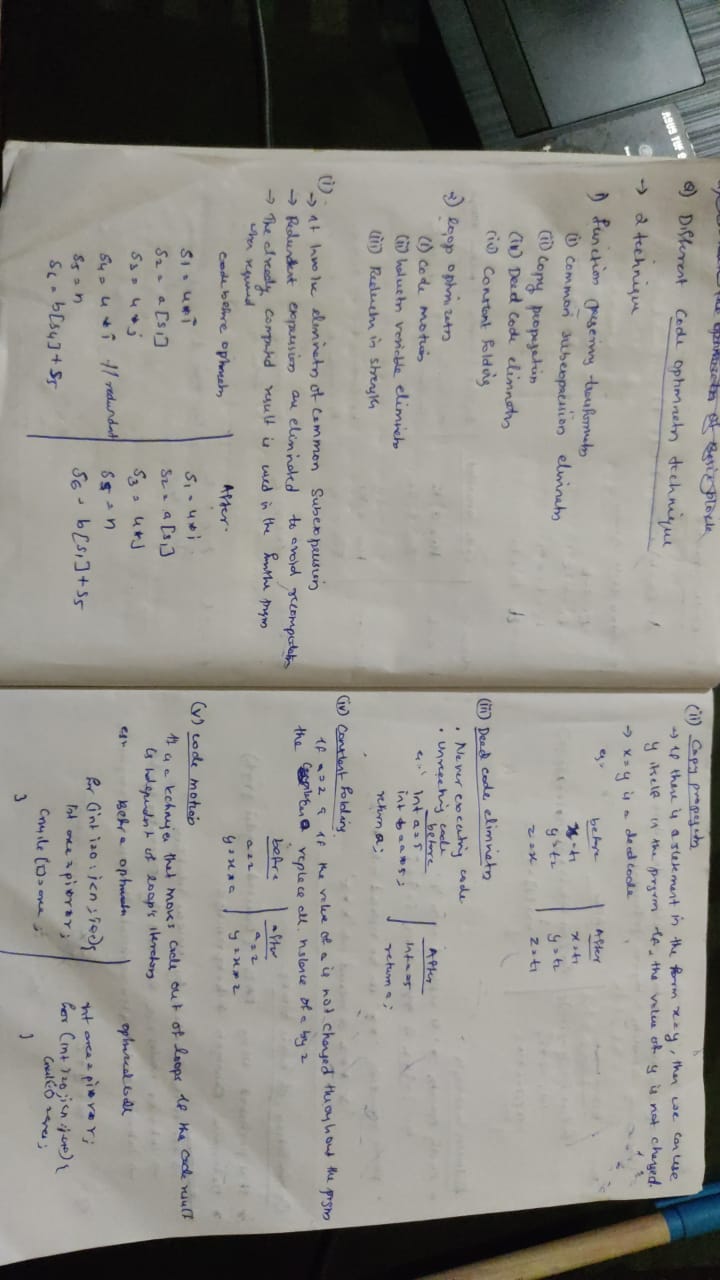 ASUS TUF G
the optimisatn of Basic block
Q) Different Code optimnatn technique
→ 2 technique
1) function preserving transformatn
(i) Common subexpression eliminatn
(ii) Copy propagation
(iii) Dead Code eliminatn
(iv) Constant folding
2) loop optimizatn
(i) Code motion
(ii) Inductn variable eliminatn
(iii) Reductn in strength
(i)
→ It involve eliminatn of Common Subexpression
→ Redundant expression are eliminated to avoid recomputation
→ The already computed result is used in the further prgm
when required
Code before optimizatn
After
S1 = 4*i
S2 = a[S1]
S3 = 4*j
S4 = 4*i // redundant
S5 = n
S6 = b[S4] + S5
S1 = 4*i
S2 = a[S1]
S3 = 4*j
S5 = n
S6 = b[S1] + S5
(ii) Copy propagatn
→ If there is a statement in the form x=y, then we can use
y itself in the prgrm if the value of y is not changed.
→ x=y is a dead code
eg:-
before
x=t1
y=t2
z=x
After
x=t1
y=t2
z=t1
(iii) Dead code eliminatn
• Never executing code
• Unreaching code
eg:-
before
int a=5
int b=a*5;
return a;
After
int a=5
return a;
(iv) Constant folding
If a=2 & if the value of a is not changed throughout the prgm
the can replace all instance of a by 2
before
a=2
y=x*a
after
a=2
y=x*2
(v) Code motion
It is a technique that moves code out of loops if the code result
is independent of loop's iteration
eg:-
Before optimatn
for (int i=0; i<n; i++){
int area = pi*r*r;
= area;
}
optimized code
int area = pi*r*r;
for (int i=0; i<n; i++){
= area;
}